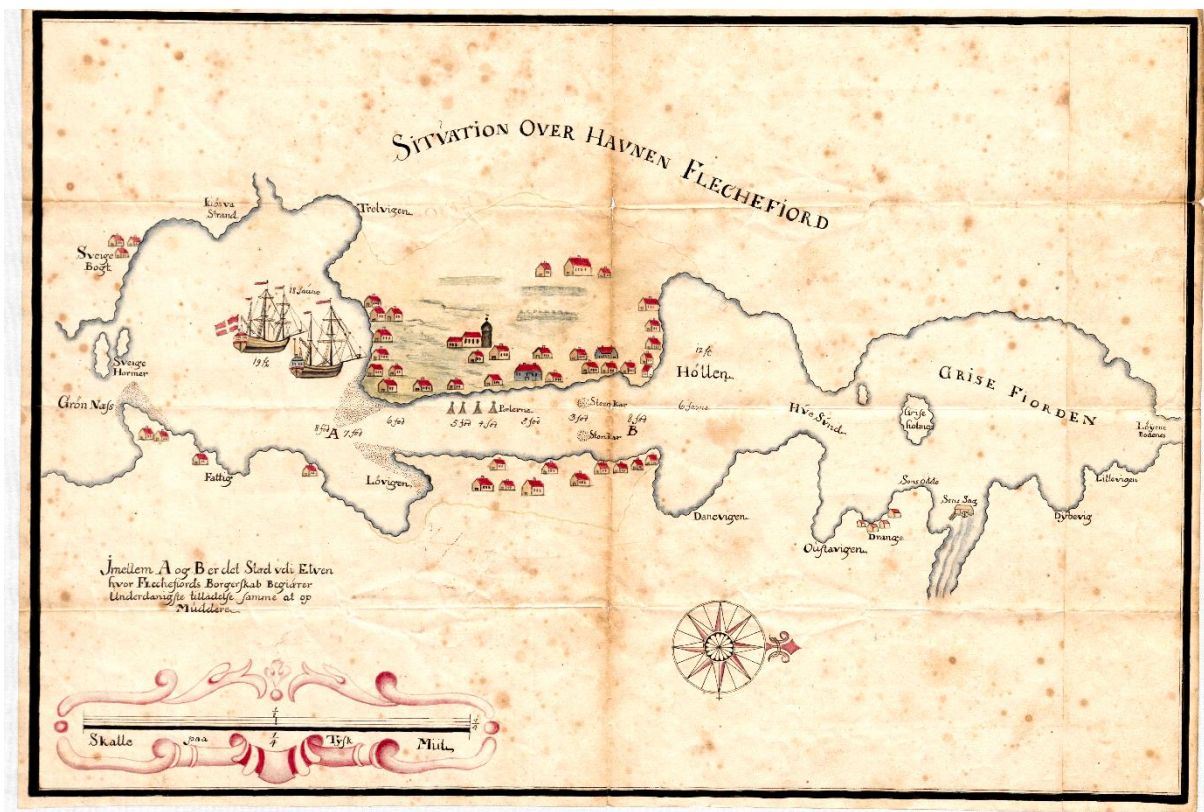 SITVATION OVER HAVNEN FLECHEFIORD
Strand
Trelvigen
Sveige
Bogt
18 faune
19 fc
Sveige
Hormer
Grön Næss
Fattig
Lövigen
8 fod
A
7 fod
6 fod
Pælerne
5 fod
4 fod
5 fod
Steen kar
3 fod
Sten kar
8 fod
B
12 fc
Höllen
6 faune
Hve Sünd
GRISE FIORDEN
Grise
holmen
Löyrne
Bodenes
Lillevigen
Dybevig
Sens Odde
Sens Sag
Drange
Oustavigen
Danevigen
Jmellem A og B er det Stæd vdi Elven
hvor Flechefiords Borgerskab Begiærer
Underdanigste tilladelse samme at op
Müddere
1/4
Skalle paa Tysk Miil